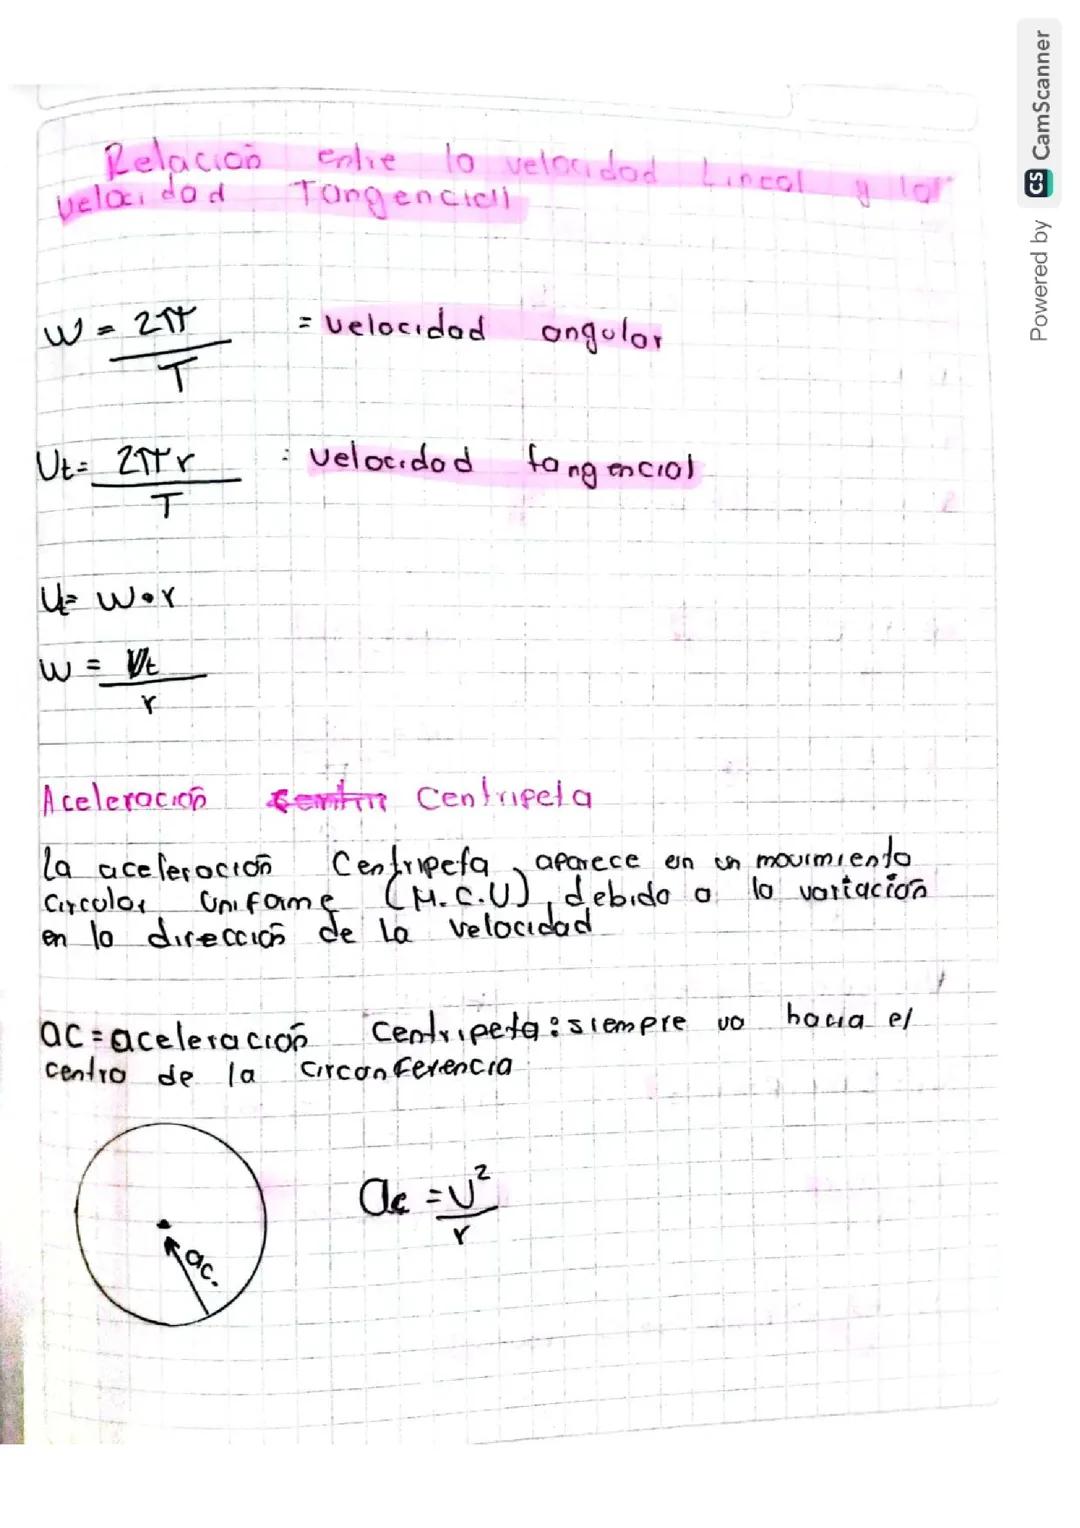 Relación entre la velocidad Lineal y la
velocidad Tangencial
w = 2π = velocidad angular
T
Vt= 2πr : velocidad tangencial
T
Vt= w•r
w = Vt
r
Aceleración Centripeta
La aceleración Centripeta, aparece en un movimiento
circular Uniforme (M.C.U), debido a la variación
en la dirección de la velocidad
ac = aceleración Centripeta: siempre va hacia el
centro de la circonferencia
ac.
ac = v²
r
Powered by CS CamScanner